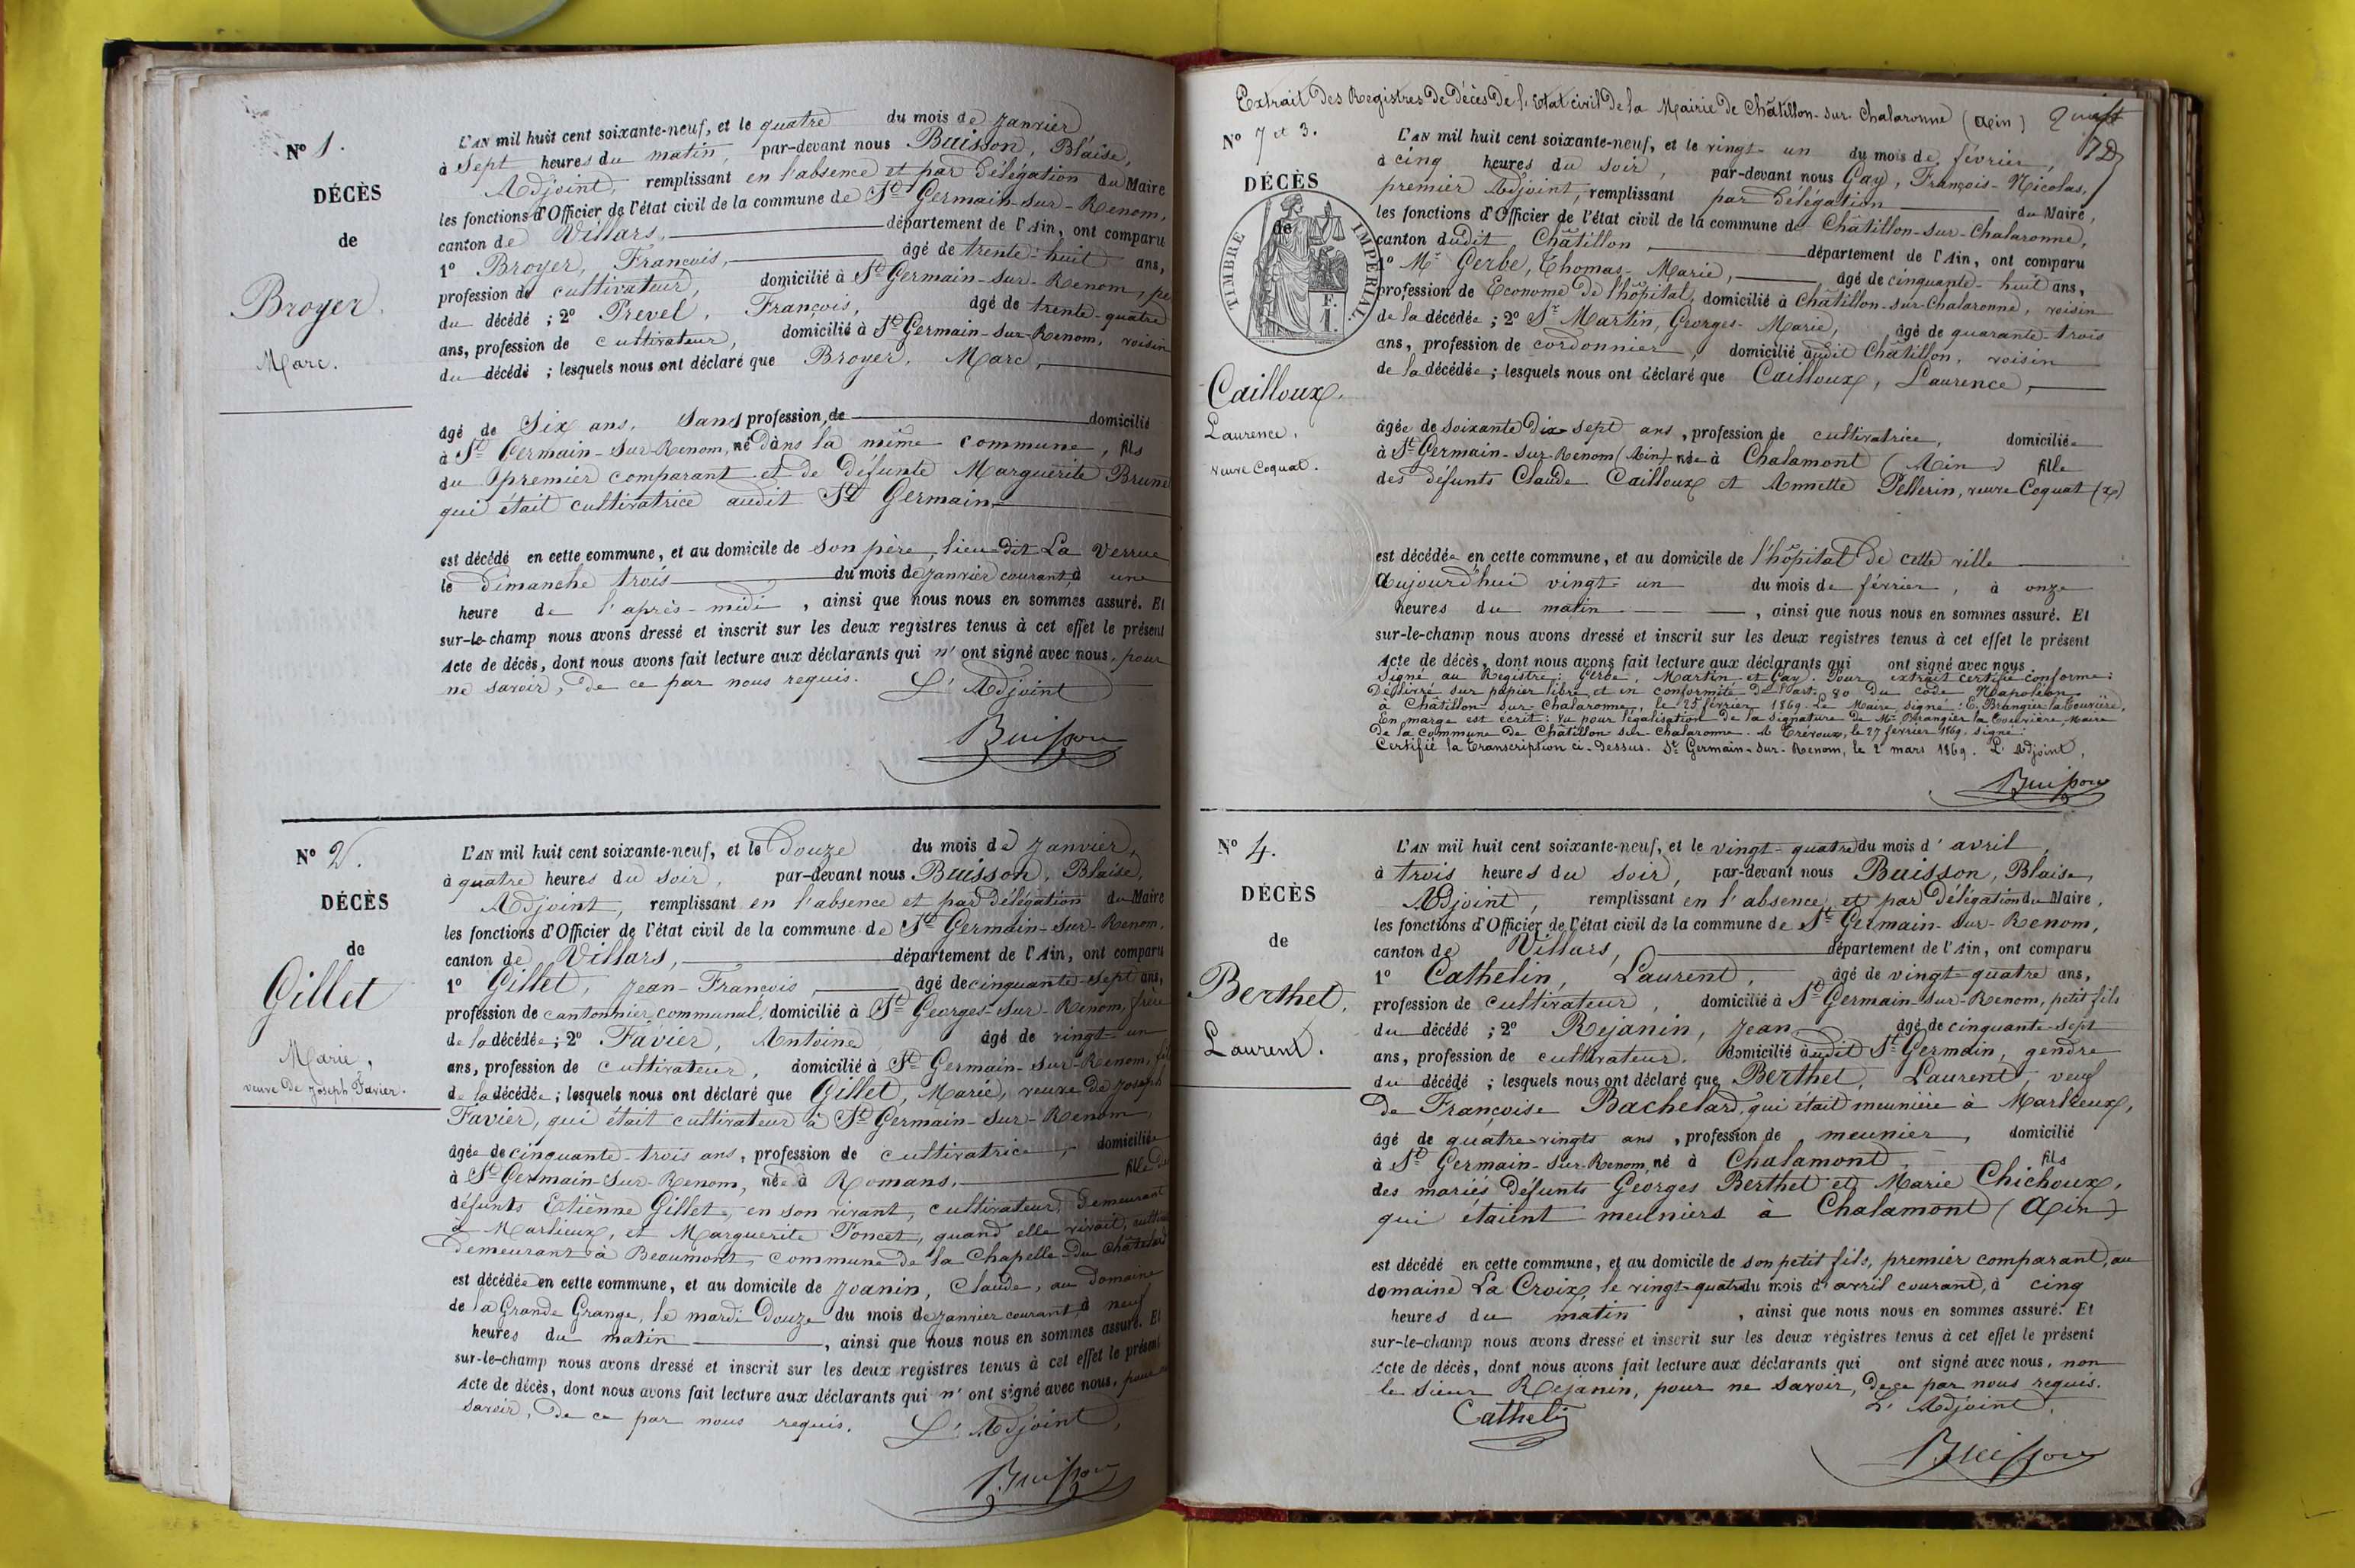 N° 1.
DÉCÈS
de
Broyer
Marc.
L'AN mil huit cent soixante-neuf, et le quatre du mois de janvier
à Sept heures du matin, par-devant nous Buisson, Blaise,
Adjoint, remplissant en l'absence et par délégation du Maire
les fonctions d'Officier de l'état civil de la commune de St Germain-sur-Renom,
canton de Villars, département de l'Ain, ont comparu
1° Broyer, François, âgé de trente-huit ans,
profession de cultivateur, domicilié à St Germain-sur-Renom,
du décédé ; 2° Prevel, François, âgé de trente-quatre
ans, profession de cultivateur, domicilié à St Germain-sur-Renom, voisin
du décédé ; lesquels nous ont déclaré que Broyer, Marc,
âgé de Six ans, Sans profession, de domicilié
à St Germain-sur-Renom, né dans la même commune, fils
du premier comparant et de défunte Marguerite Brune
qui était cultivatrice audit St Germain
est décédé en cette commune, et au domicile de son père, lieu dit La Verrue
le dimanche trois du mois de janvier courant, à une
heure de l'après-midi, ainsi que nous nous en sommes assuré. Et
sur-le-champ nous avons dressé et inscrit sur les deux registres tenus à cet effet le présent
Acte de décès, dont nous avons fait lecture aux déclarants qui n'ont signé avec nous, pour
ne savoir, de ce par nous requis. L'Adjoint
Buisson
N° 2.
DÉCÈS
de
Gillet
Marie,
veuve de Joseph Favier.
L'AN mil huit cent soixante-neuf, et le douze du mois de janvier,
à quatre heures du soir, par-devant nous Buisson, Blaise,
Adjoint, remplissant en l'absence et par délégation du Maire
les fonctions d'Officier de l'état civil de la commune de St Germain-sur-Renom,
canton de Villars, département de l'Ain, ont comparu
1° Gillet, Jean-François, âgé de cinquante-sept ans,
profession de cantonnier communal, domicilié à St Georges-sur-Renom, frère
de la décédée ; 2° Favier, Antoine âgé de vingt-un
ans, profession de cultivateur, domicilié à St Germain-sur-Renom, fils
de la décédée ; lesquels nous ont déclaré que Gillet, Marie, veuve de Joseph
Favier, qui était cultivateur à St Germain-sur-Renom,
âgée de cinquante-trois ans, profession de cultivatrice, domiciliée
à St Germain-sur-Renom, née à Romans, fille de
défunts Etienne Gillet, en son vivant, cultivateur, demeurant
à Marlieux, et Marguerite Poncet, quand elle vivait,
demeurant à Beaumont, commune de la Chapelle-du-Châtelard
est décédée en cette commune, et au domicile de Joanin, Claude, au domaine
de la Grande Grange, le mardi douze du mois de janvier courant, à neuf
heures du matin, ainsi que nous nous en sommes assuré. Et
sur-le-champ nous avons dressé et inscrit sur les deux registres tenus à cet effet le présent
Acte de décès, dont nous avons fait lecture aux déclarants qui n'ont signé avec nous, pour
savoir, de ce par nous requis. L'Adjoint,
Buisson
Extrait des Registres de Décès de l'Etat civil de la Mairie de Châtillon-sur-Chalaronne (Ain)
N° 7 et 3.
DÉCÈS
de
TIMBRE IMPÉRIAL
Cailloux,
Laurence,
veuve Coquat.
L'AN mil huit cent soixante-neuf, et le vingt-un du mois de février,
à cinq heures du soir, par-devant nous Gay, François-Nicolas,
premier Adjoint, remplissant par délégation du Maire,
les fonctions d'Officier de l'état civil de la commune de Châtillon-sur-Chalaronne,
canton dudit Châtillon département de l'Ain, ont comparu
1° Mr Gerbe, Thomas-Marie, âgé de cinquante-huit ans,
profession de Econome de l'hôpital, domicilié à Châtillon-sur-Chalaronne, voisin
de la décédée ; 2° Sr Martin, Georges-Marie, âgé de quarante-trois
ans, profession de cordonnier, domicilié audit Châtillon, voisin
de la décédée ; lesquels nous ont déclaré que Cailloux, Laurence,
âgée de soixante dix-sept ans, profession de cultivatrice, domiciliée
à St Germain-sur-Renom (Ain) née à Chalamont (Ain) fille
des défunts Claude Cailloux et Annette Pellerin, veuve Coquat (x)
est décédée en cette commune, et au domicile de l'hôpital de cette ville
Aujourd'hui vingt-un du mois de février, à onze
heures du matin, ainsi que nous nous en sommes assuré. Et
sur-le-champ nous avons dressé et inscrit sur les deux registres tenus à cet effet le présent
Acte de décès, dont nous avons fait lecture aux déclarants qui ont signé avec nous.
Signé au Registre : Gerbe, Martin et Gay. Pour extrait certifié conforme :
Délivré sur papier libre et en conformité de l'art. 80 du code Napoléon
à Châtillon-sur-Chalaronne, le 25 février 1869. Le Maire, signé : E. Brangier la Couvrière,
En marge est écrit : Vu pour légalisation de la signature de Mr Brangier la Couvrière, Maire
de la commune de Châtillon sur Chalaronne. A Trévoux, le 27 février 1869. Signé :
Certifié la transcription ci-dessus. St Germain-sur-Renom, le 2 mars 1869. L'Adjoint,
Buisson
N° 4.
DÉCÈS
de
Berthet,
Laurent.
L'AN mil huit cent soixante-neuf, et le vingt-quatre du mois d'avril,
à trois heures du soir, par-devant nous Buisson, Blaise,
Adjoint, remplissant en l'absence, et par délégation du Maire,
les fonctions d'Officier de l'état civil de la commune de St Germain-sur-Renom,
canton de Villars, département de l'Ain, ont comparu
1° Cathelin, Laurent, âgé de vingt-quatre ans,
profession de cultivateur, domicilié à St Germain-sur-Renom, petit fils
du décédé ; 2° Rejanin, Jean âgé de cinquante-sept
ans, profession de cultivateur, domicilié audit St Germain, gendre
du décédé ; lesquels nous ont déclaré que Berthet, Laurent, veuf
de Françoise Bachelard, qui était meunière à Marlieux,
âgé de quatre-vingts ans, profession de meunier, domicilié
à St Germain-sur-Renom, né à Chalamont, fils
des mariés défunts Georges Berthet et Marie Chichoux,
qui étaient meuniers à Chalamont (Ain)
est décédé en cette commune, et au domicile de son petit fils, premier comparant, au
domaine La Croix, le vingt-quatre du mois d'avril courant, à cinq
heures du matin, ainsi que nous nous en sommes assuré. Et
sur-le-champ nous avons dressé et inscrit sur les deux registres tenus à cet effet le présent
Acte de décès, dont nous avons fait lecture aux déclarants qui ont signé avec nous, non
le sieur Rejanin, pour ne savoir, de ce par nous requis.
Cathelin L'Adjoint,
Buisson